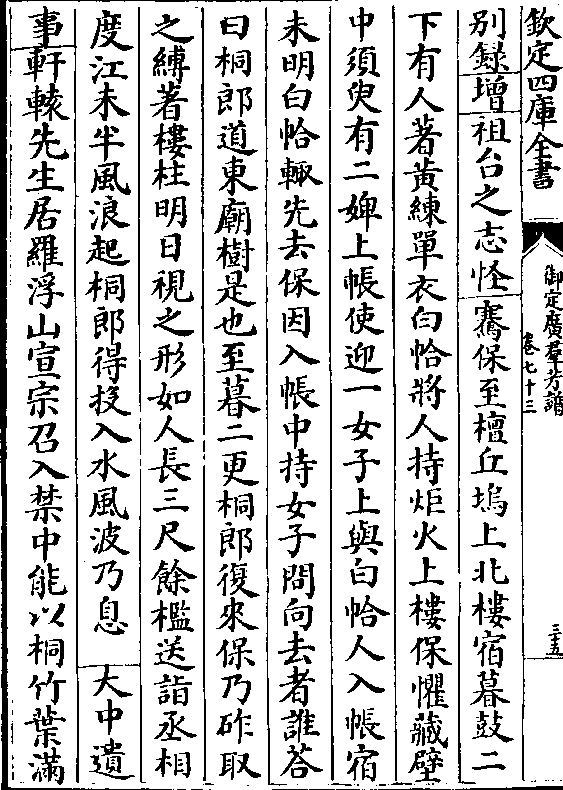 欽定四庫全書
御定廣羣芳譜
卷七十三
三五
别録增祖台之志怪騫保至檀丘塢上北樓宿暮鼓二
下有人著黄練單衣白帢將人持炬火上樓保懼藏壁
中須臾有二婢上帳使迎一女子上與白帢人入帳宿
未明白帢輙先去保因入帳中持女子問向去者誰荅
曰桐郎道東廟樹是也至暮二更桐郎復來保乃斫取
之縛著樓柱明日視之形如人長三尺餘檻送詣丞相
度江未半風浪起桐郎得投入水風波乃息 大中遺
事軒轅先生居羅浮山宣宗召入禁中能以桐竹葉滿